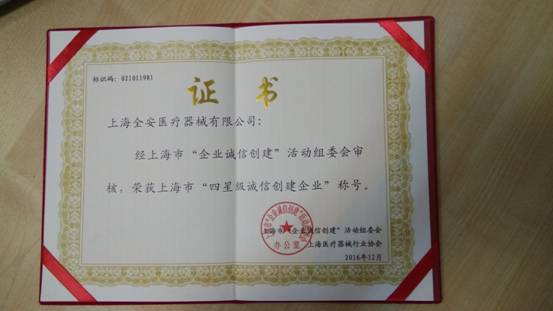 标识码：021011981
证 书
上海全安医疗器械有限公司：
经上海市“企业诚信创建”活动组委会审
核，荣获上海市“四星级诚信创建企业”称号。
上海市“企业诚信创建”活动组委会
办公室
上海医疗器械行业协会
2016年12月